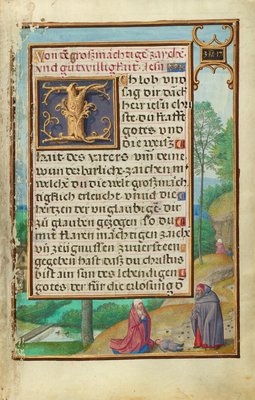 Von dē großmächtigē zaichē
vnd gutwilligkait Jesu
Ich lob vnd
sag dir dāck
herr iesu chris
te du krafft
gotes vnd
die weißz
hait des vaters vm̄ deine
wunderbarliche zaichen in
welchē du die welt großmech
tigklich erleucht vnd die
hertzen der vnglaubigē dir
zu glauben gezogen so du
mit klaren mächtigen zaichē
vn̄ zeügnussen zuuersteen
gegeben hast das du christus
bist ain sun des lebendigen
gotes der für die erlösung d